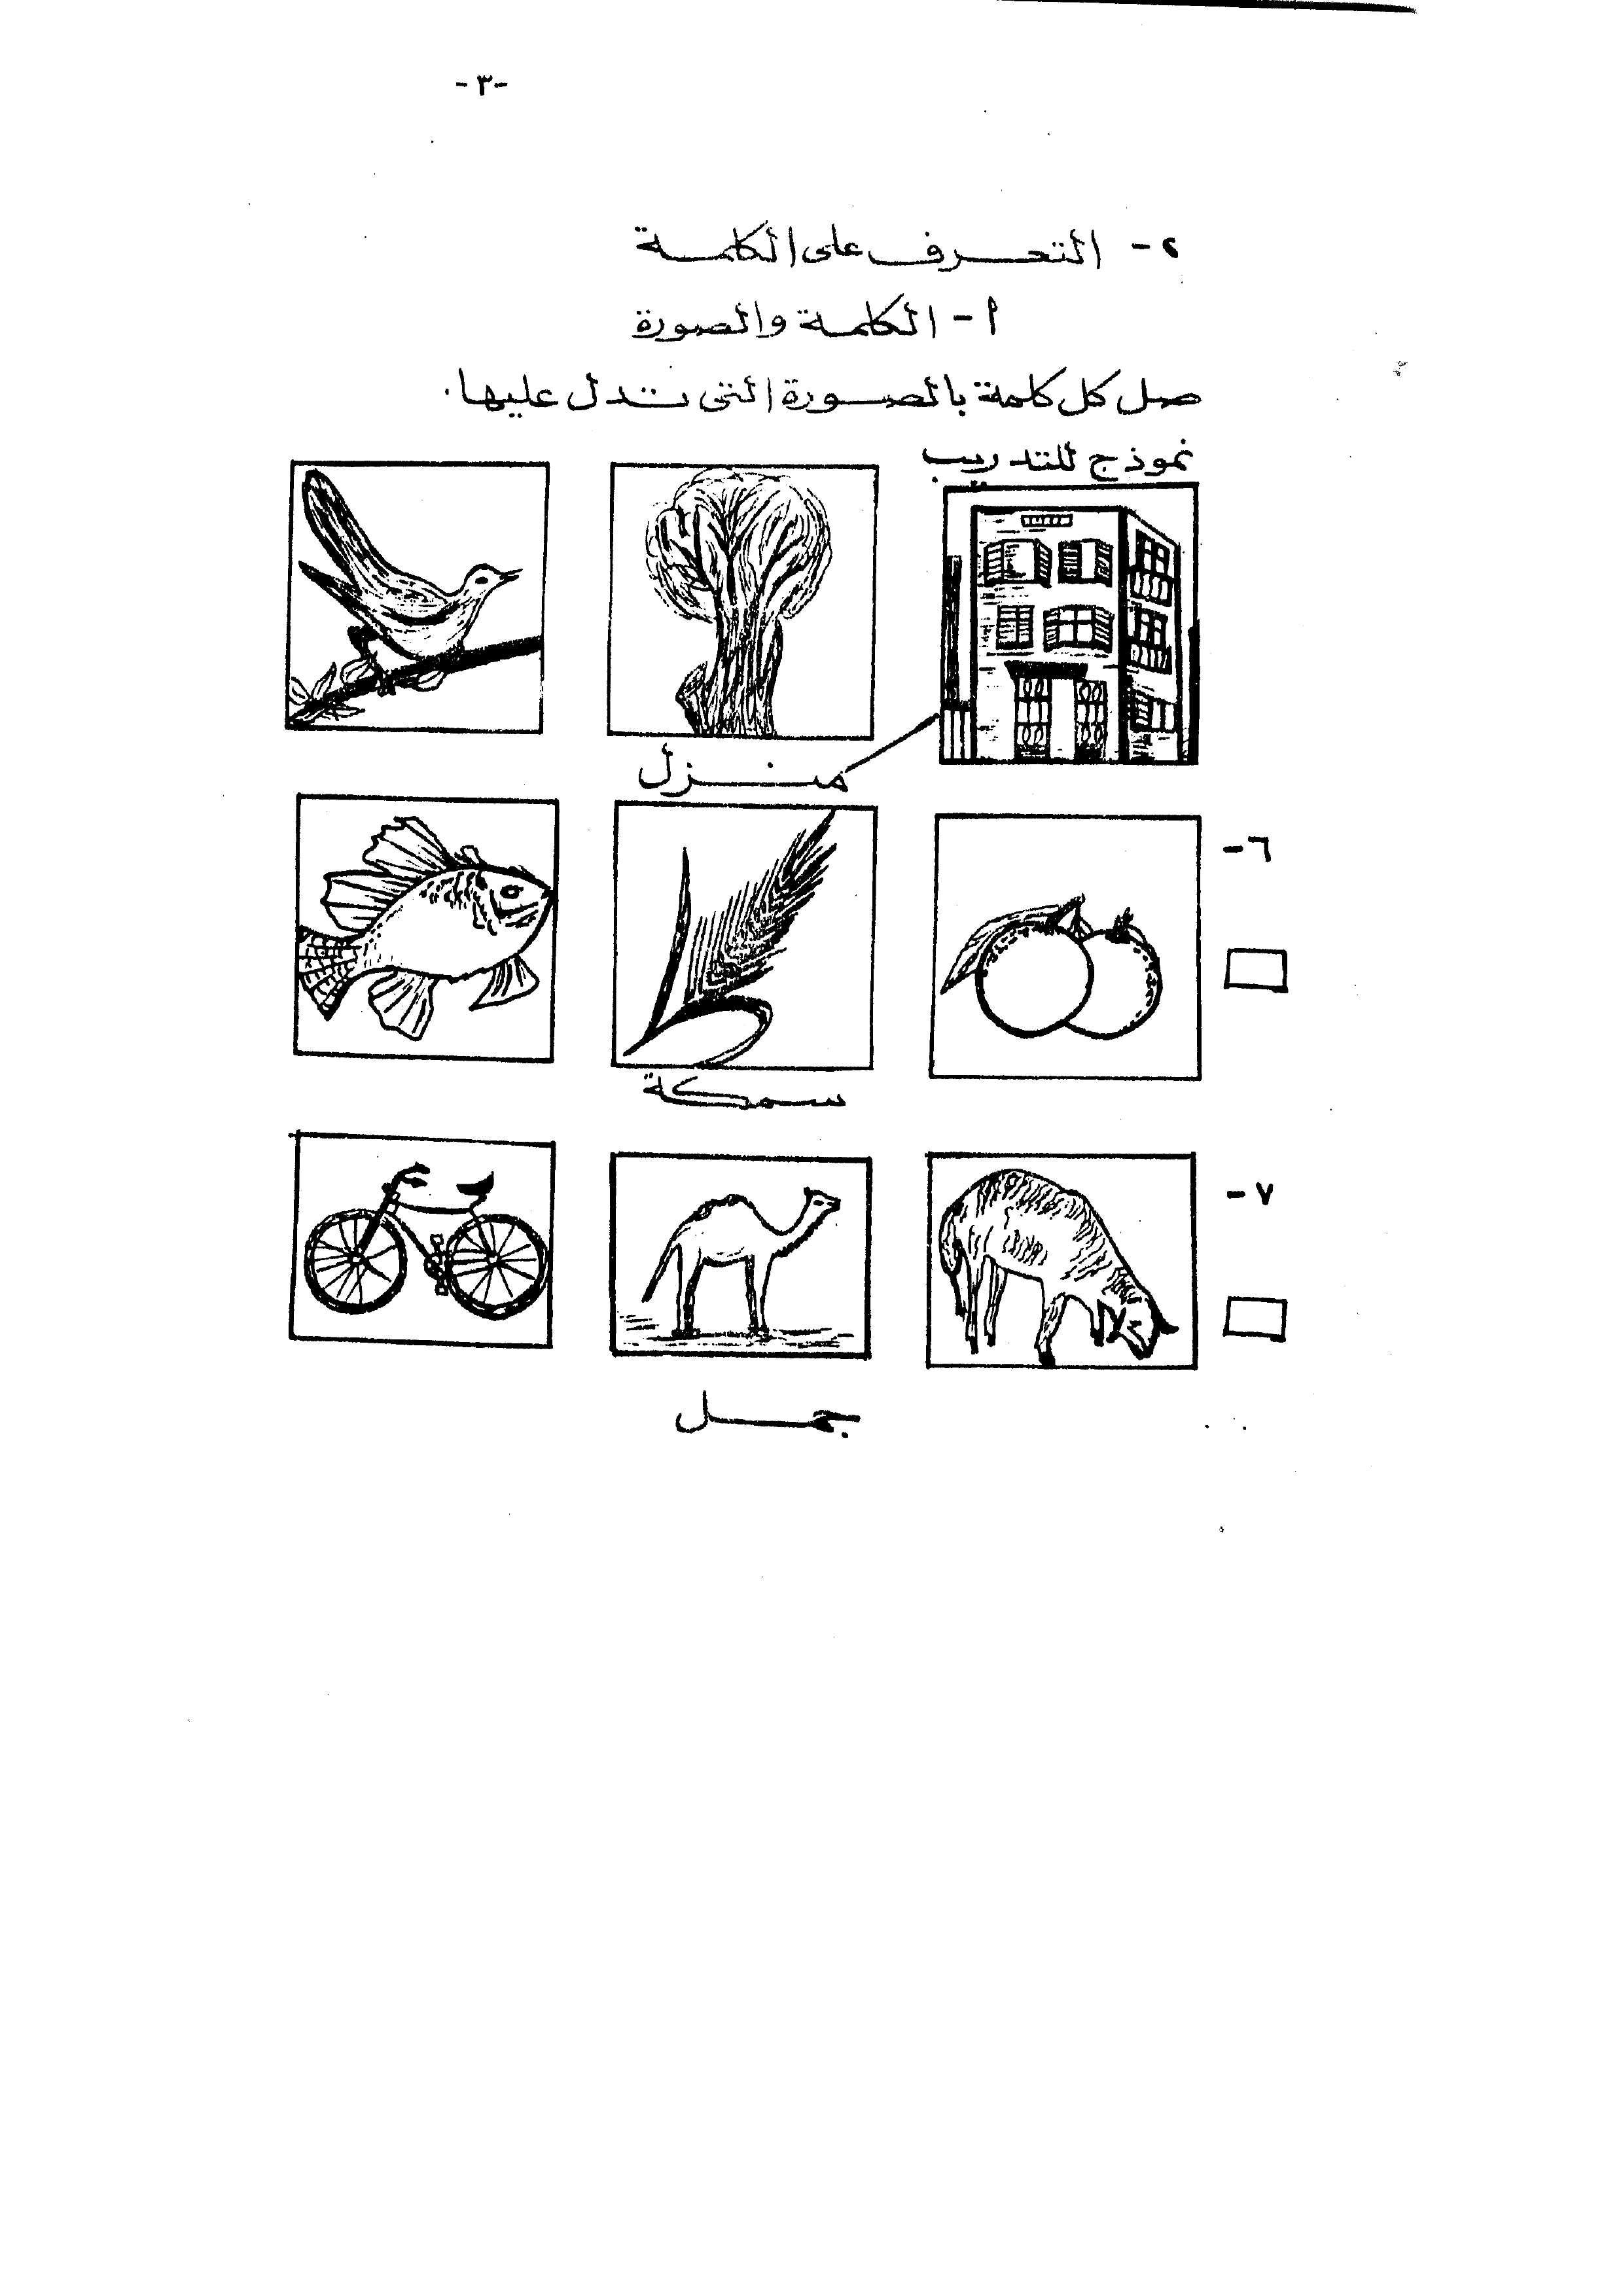 -٣-
٢- التعرف على الكلمة
أ- الكلمة والصورة
صل كل كلمة بالصورة التى تدل عليها.
نموذج للتدريب
منزل
٦-
سمكة
٧-
جمل